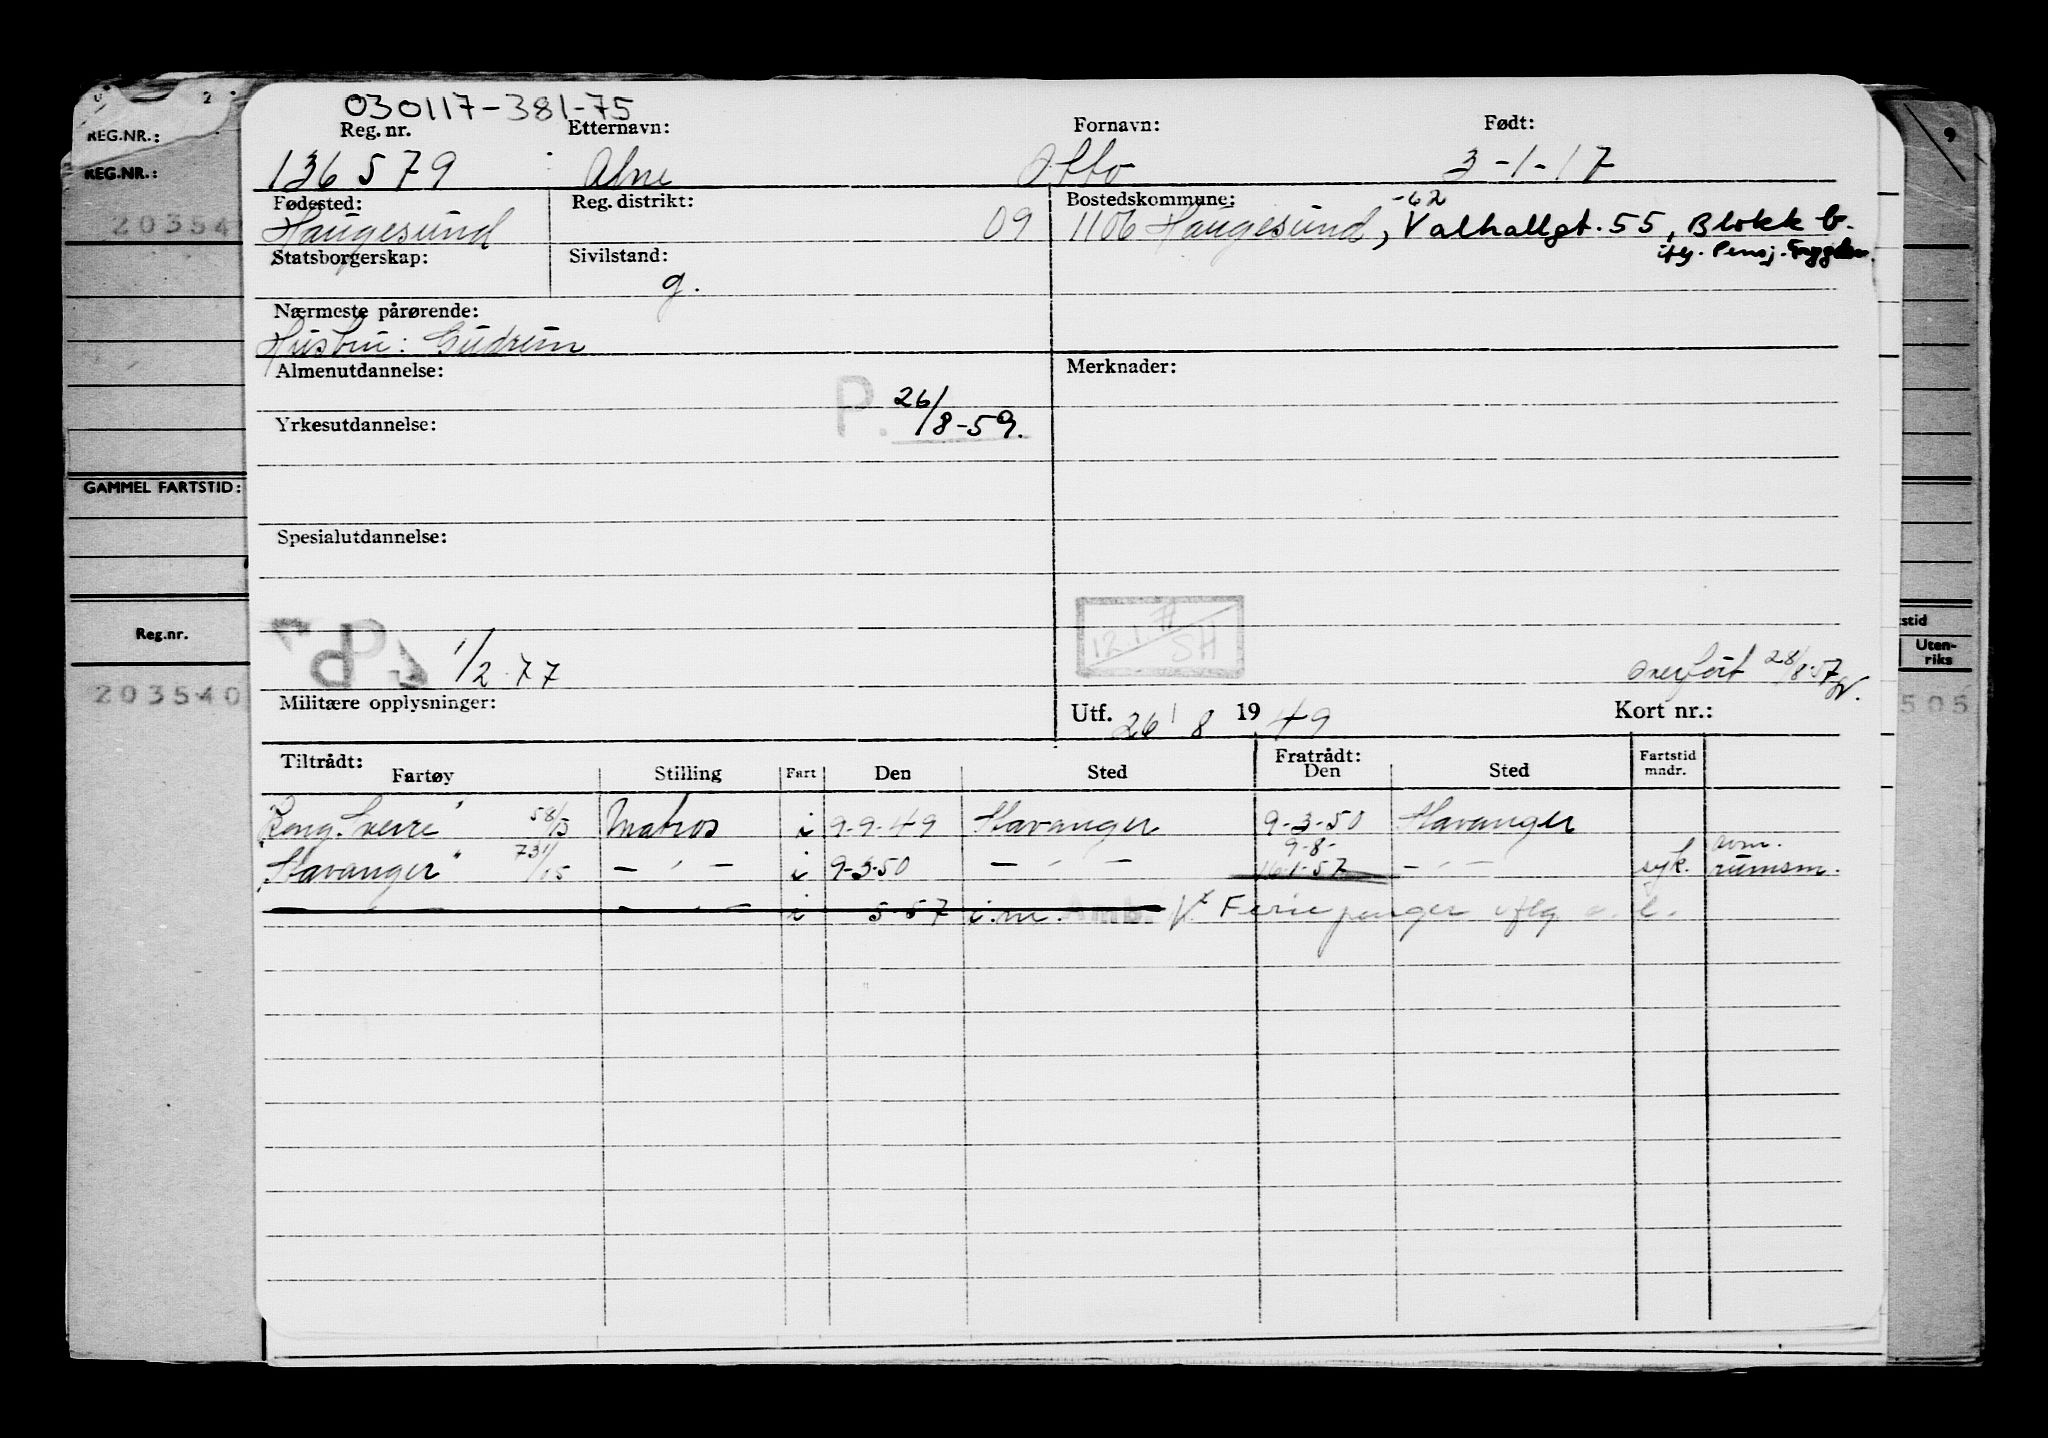 030117-381-75
REG.NR.:
REG.NR.:
Reg. nr. Etternavn: Fornavn: Født:
136579 Alne Otto 3-1-17
Fødested: Reg. distrikt: Bostedskommune: -62
20354
Haugesund 09 1106 Haugesund, Valhallgt. 55, Blokk b.
Statsborgerskap: Sivilstand:
g.
Nærmeste pårørende:
Hustru: Gudrun
Almenutdannelse: Merknader:
P. 26/8-59.
Yrkesutdannelse:
GAMMEL FARTSTID:
Spesialutdannelse:
12.1.77
SH
Reg.nr. stid
Uten-
riks
1/2.77 Overført 28/8-57
203540 505
Militære opplysninger: Utf. 26/8 1949 Kort nr.:
Tiltrådt: Fratrådt:
Fartøy Stilling Fart Den Sted Den Sted Fartstid mndr.
"Kong Sverre" 58/15 Matros i 9-9-49 Stavanger 9-3-50 Stavanger
9-8- avm.
"Stavanger" 731/15 — " — i 9-3-50 — " — 16-1-57 — " — syk. rumsm.
— " — i 5-57 i.m. Amb. Feriepenger iflg.